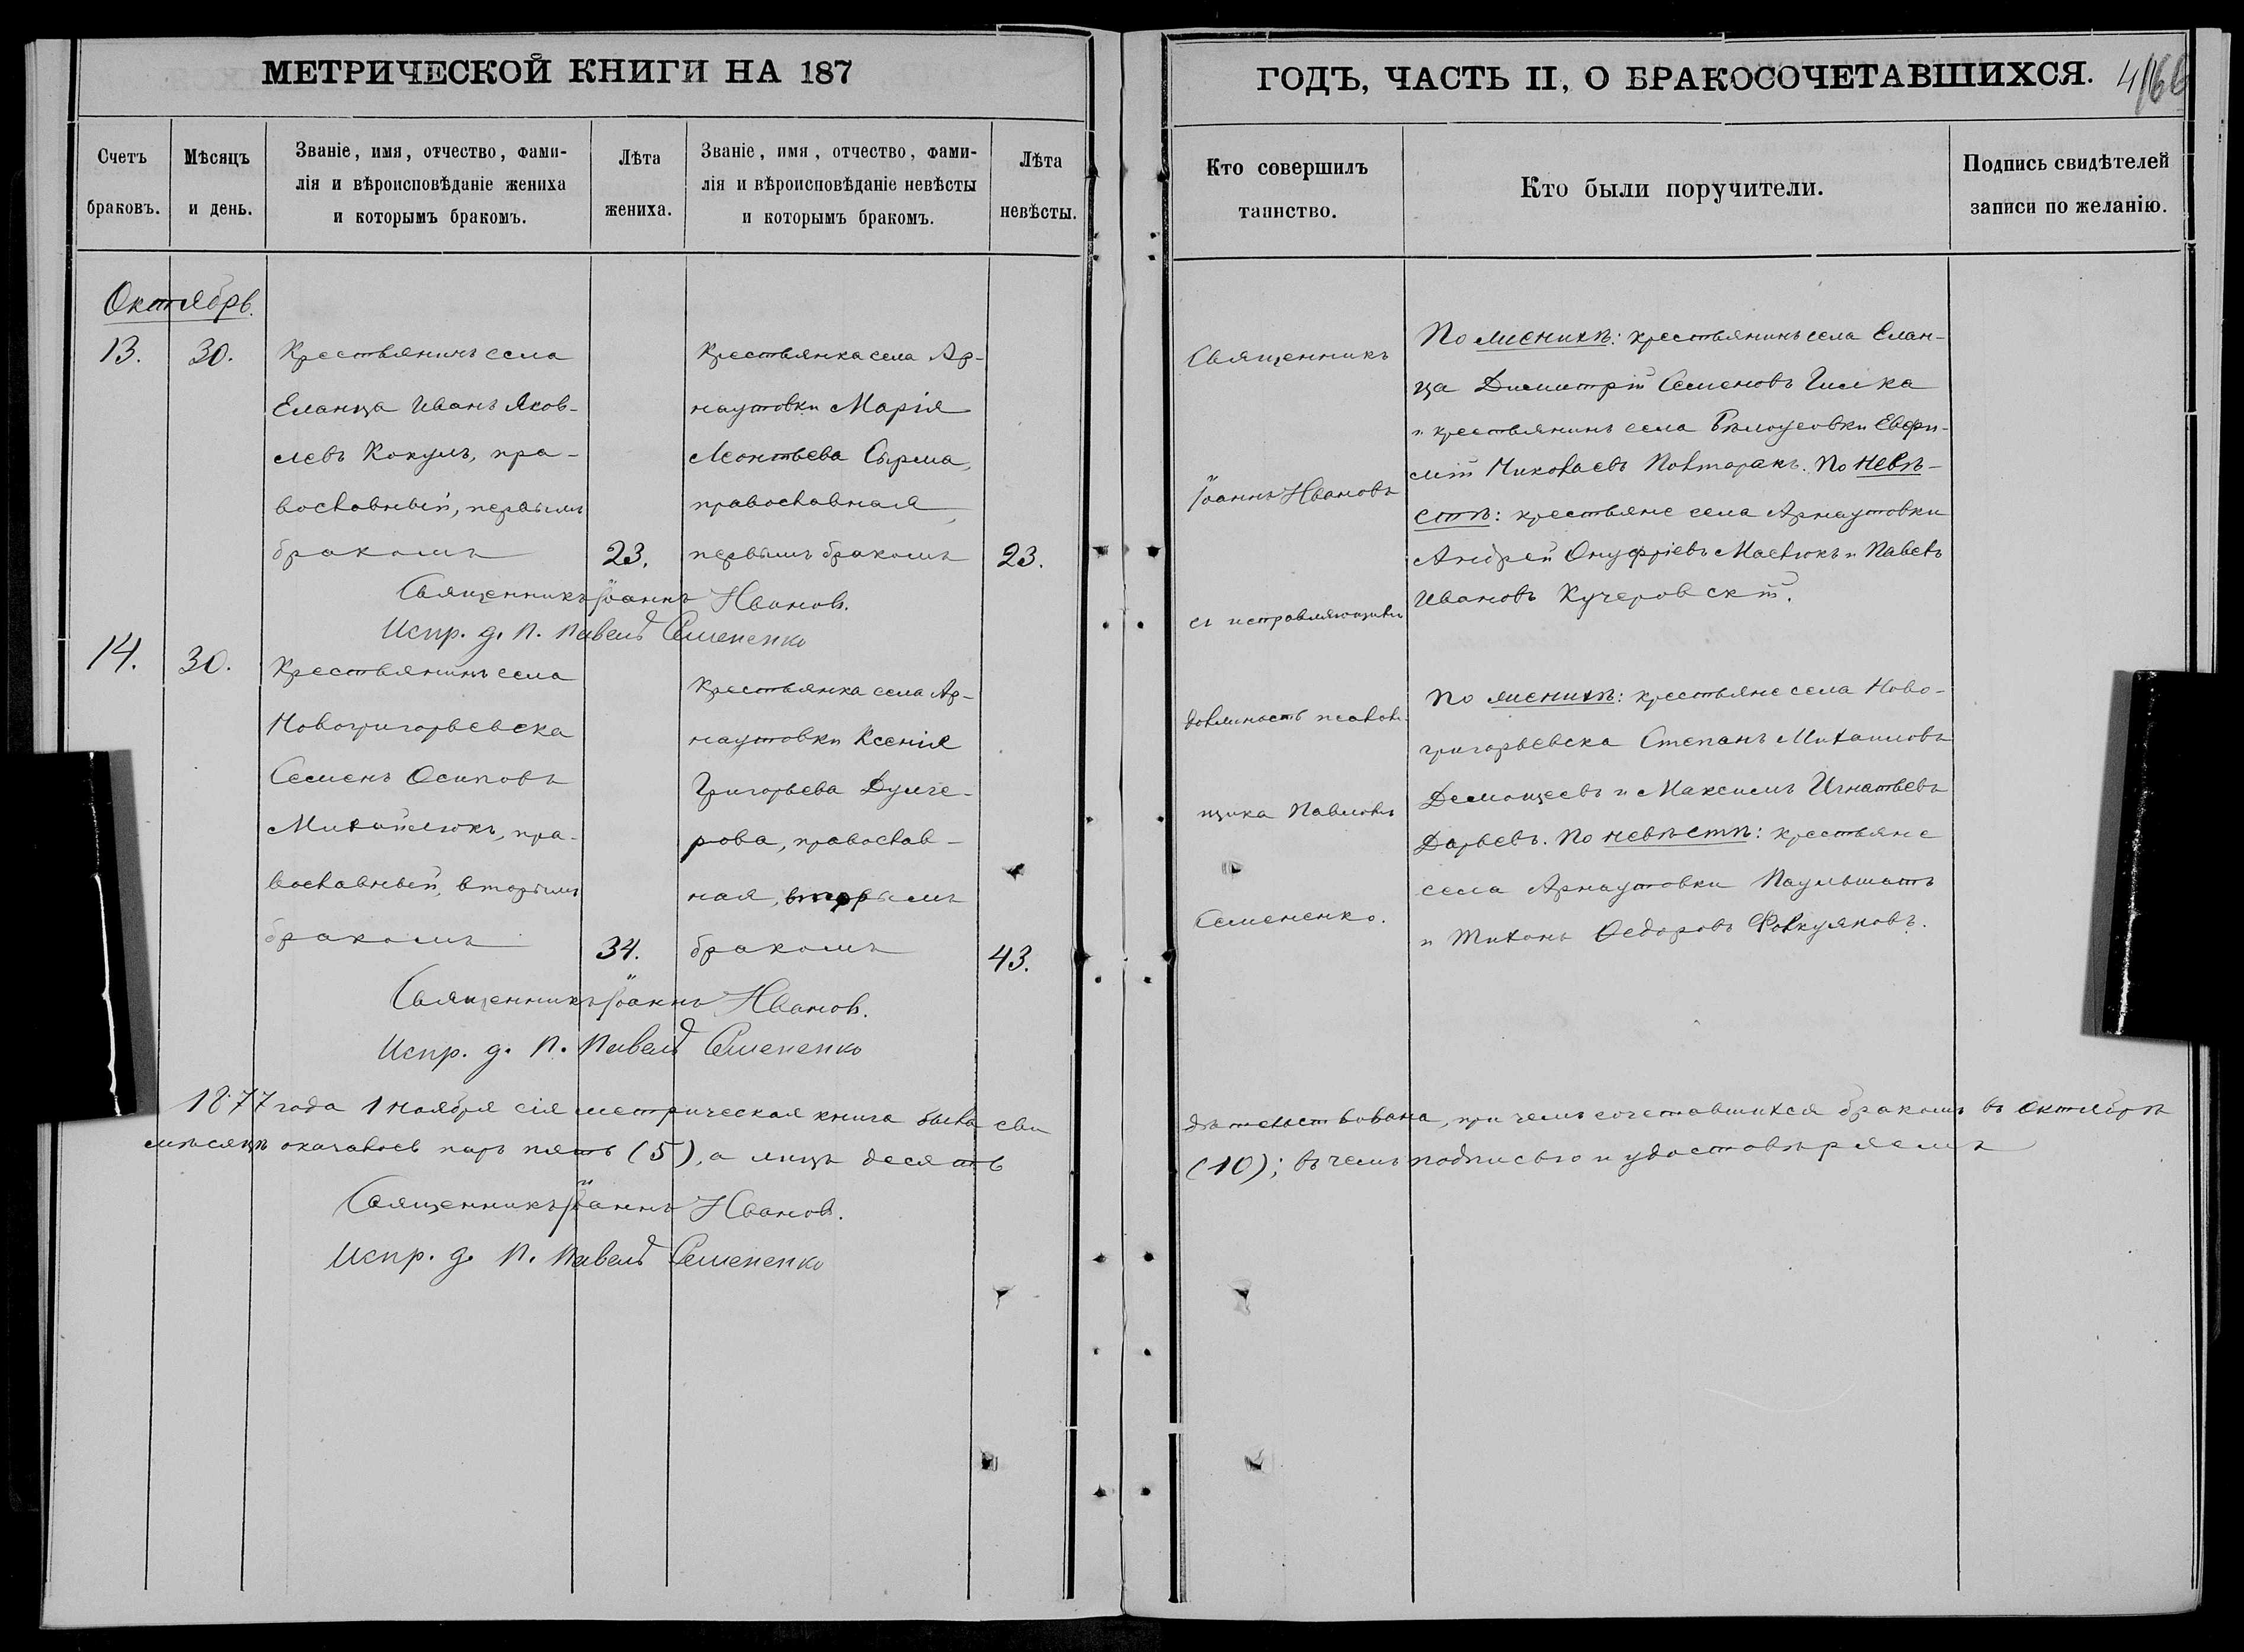 МЕТРИЧЕСКОЙ КНИГИ НА 187
Счетъ браковъ.
Мѣсяцъ и день.
Званіе, имя, отчество, фами-
лія и вѣроисповѣданіе жениха
и которымъ бракомъ.
Лѣта жениха.
Званіе, имя, отчество, фами-
лія и вѣроисповѣданіе невѣсты
и которымъ бракомъ.
Лѣта невѣсты.
Октябрь.
13.
30.
Крестьянинъ села
Еланца Иванъ Яков-
левъ Кокулъ, пра-
вославный, первымъ
бракомъ
23.
Крестьянка села Ар-
наутовки Марія
Леонтьева Сырма,
православная,
первымъ бракомъ
23.
Священникъ Іоаннъ Ивановъ.
Испр. д. п. Павелъ Семененко
14.
30.
Крестьянинъ села
Новогригорьевска
Семенъ Осиповъ
Михайлюкъ, пра-
вославный, вторымъ
бракомъ
34.
Крестьянка села Ар-
наутовки Ксенія
Григорьева Дулге-
рова, православ-
ная, вторымъ
бракомъ
43.
Священникъ Іоаннъ Ивановъ.
Испр. д. п. Павелъ Семененко
1877 года 1 ноября сія метрическая книга была сви
мѣсяцѣ оказалось паръ пять (5), а лицъ десять
Священникъ Іоаннъ Ивановъ.
Испр. д. п. Павелъ Семененко
ГОДЪ, ЧАСТЬ II, О БРАКОСОЧЕТАВШИХСЯ.
Кто совершилъ
таинство.
Кто были поручители.
Подпись свидѣтелей
записи по желанію.
Священникъ
Іоаннъ Ивановъ
съ исправляющимъ
должность псалом-
щика Павломъ
Семененко.
По женихѣ: крестьянинъ села Елан-
ца Димитрій Семеновъ Гилка
и крестьянинъ села Бѣлоусовки Евфи-
мій Николаевъ Повторакъ. По невѣ-
стѣ: крестьяне села Арнаутовки
Андрей Онуфріевъ Маслюкъ и Павелъ
Ивановъ Кучеровскій.
По женихѣ: крестьяне села Ново-
григорьевска Степанъ Михаиловъ
и Максимъ Игнатьевъ
Дарьевъ. По невѣстѣ: крестьяне
села Арнаутовки
и Тихонъ Федоровъ
дѣтельствована, при чемъ сочетавшихся бракомъ въ октябрѣ
(10); въ чемъ подписью и удостовѣряемъ